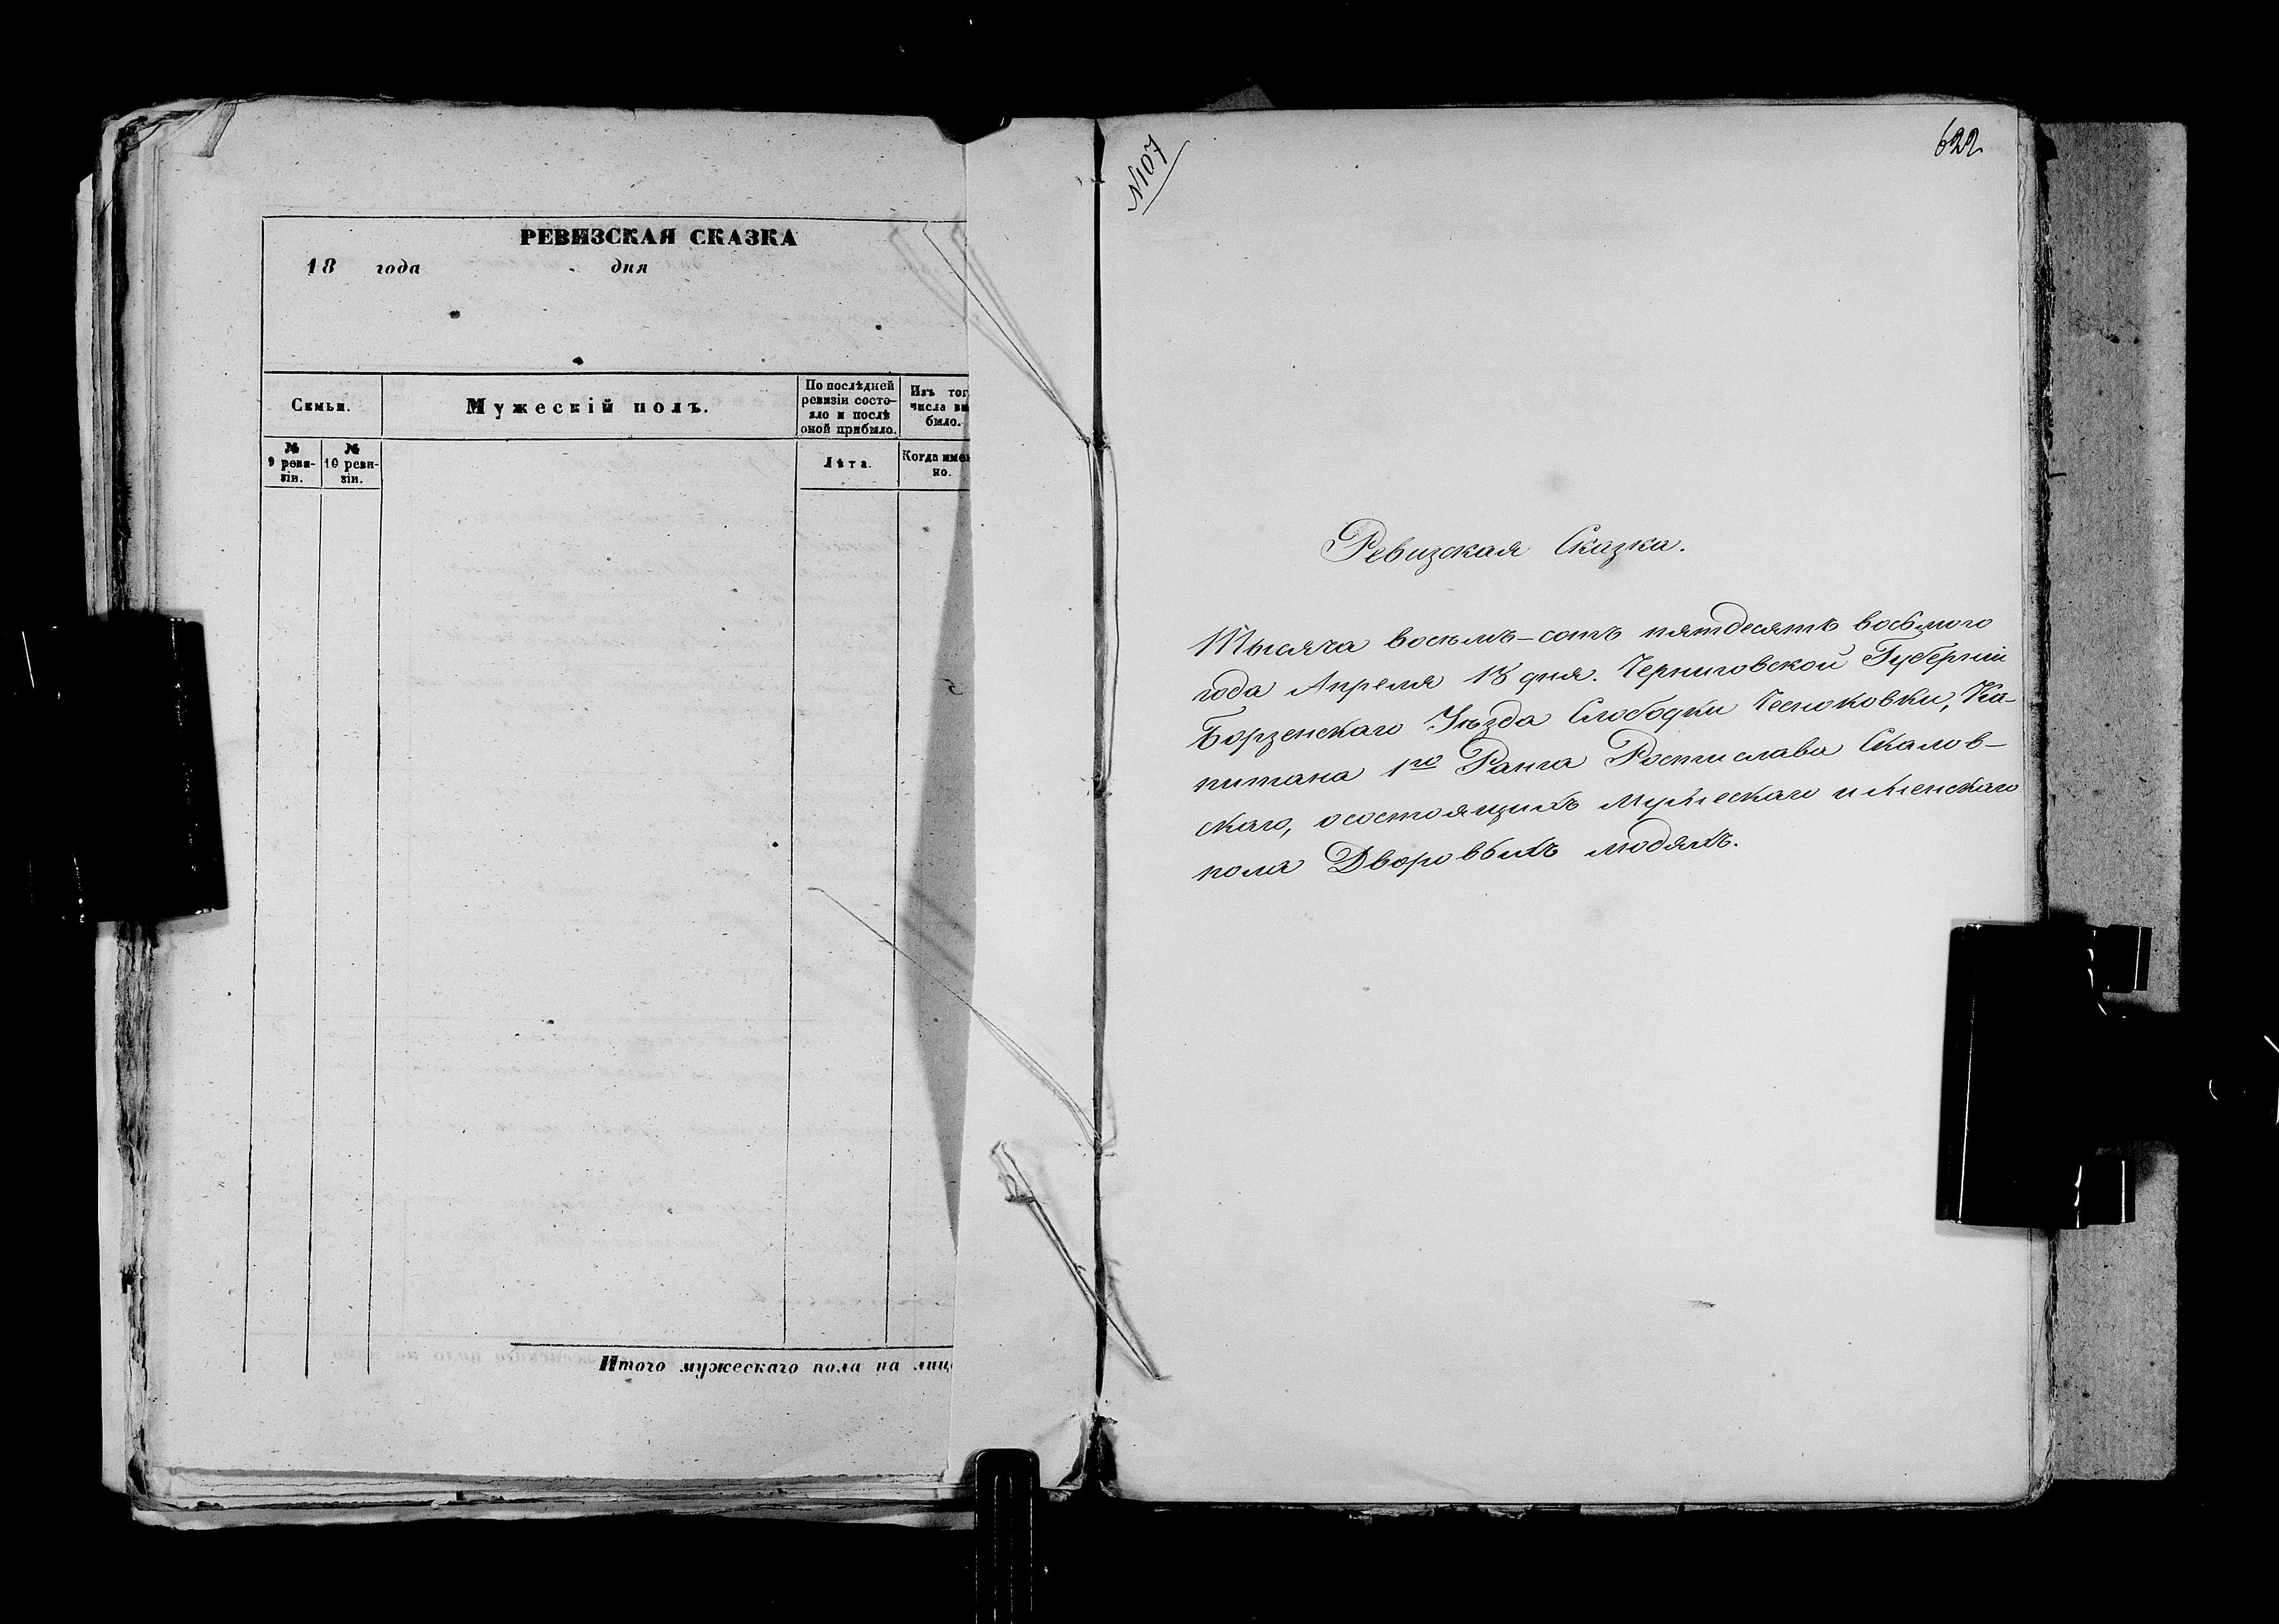 РЕВИЗСКАЯ СКАЗКА
18 года дня
Семьи.
Мужескій полъ.
По послѣдней
ревизіи состо-
яло и послѣ
оной прибыло.
Изъ тог
числа вы
было.
№
9 реви-
зіи.
№
10 реви-
зіи.
Лѣта.
Когда имен
но.
Итого мужескаго пола на лиц
№107
622
Ревизская Сказка.
Тысяча восемь-сотъ пятдесятъ восьмого
года Апреля 18 дня. Черниговской Губерніи
Борзенскаго Уѣзда Слободки Чесноковки, Ка-
питана 1го Ранга Ростислава Скалов-
скаго, осостоящихъ мужескаго и женскаго
пола Дворовыхъ людяхъ.